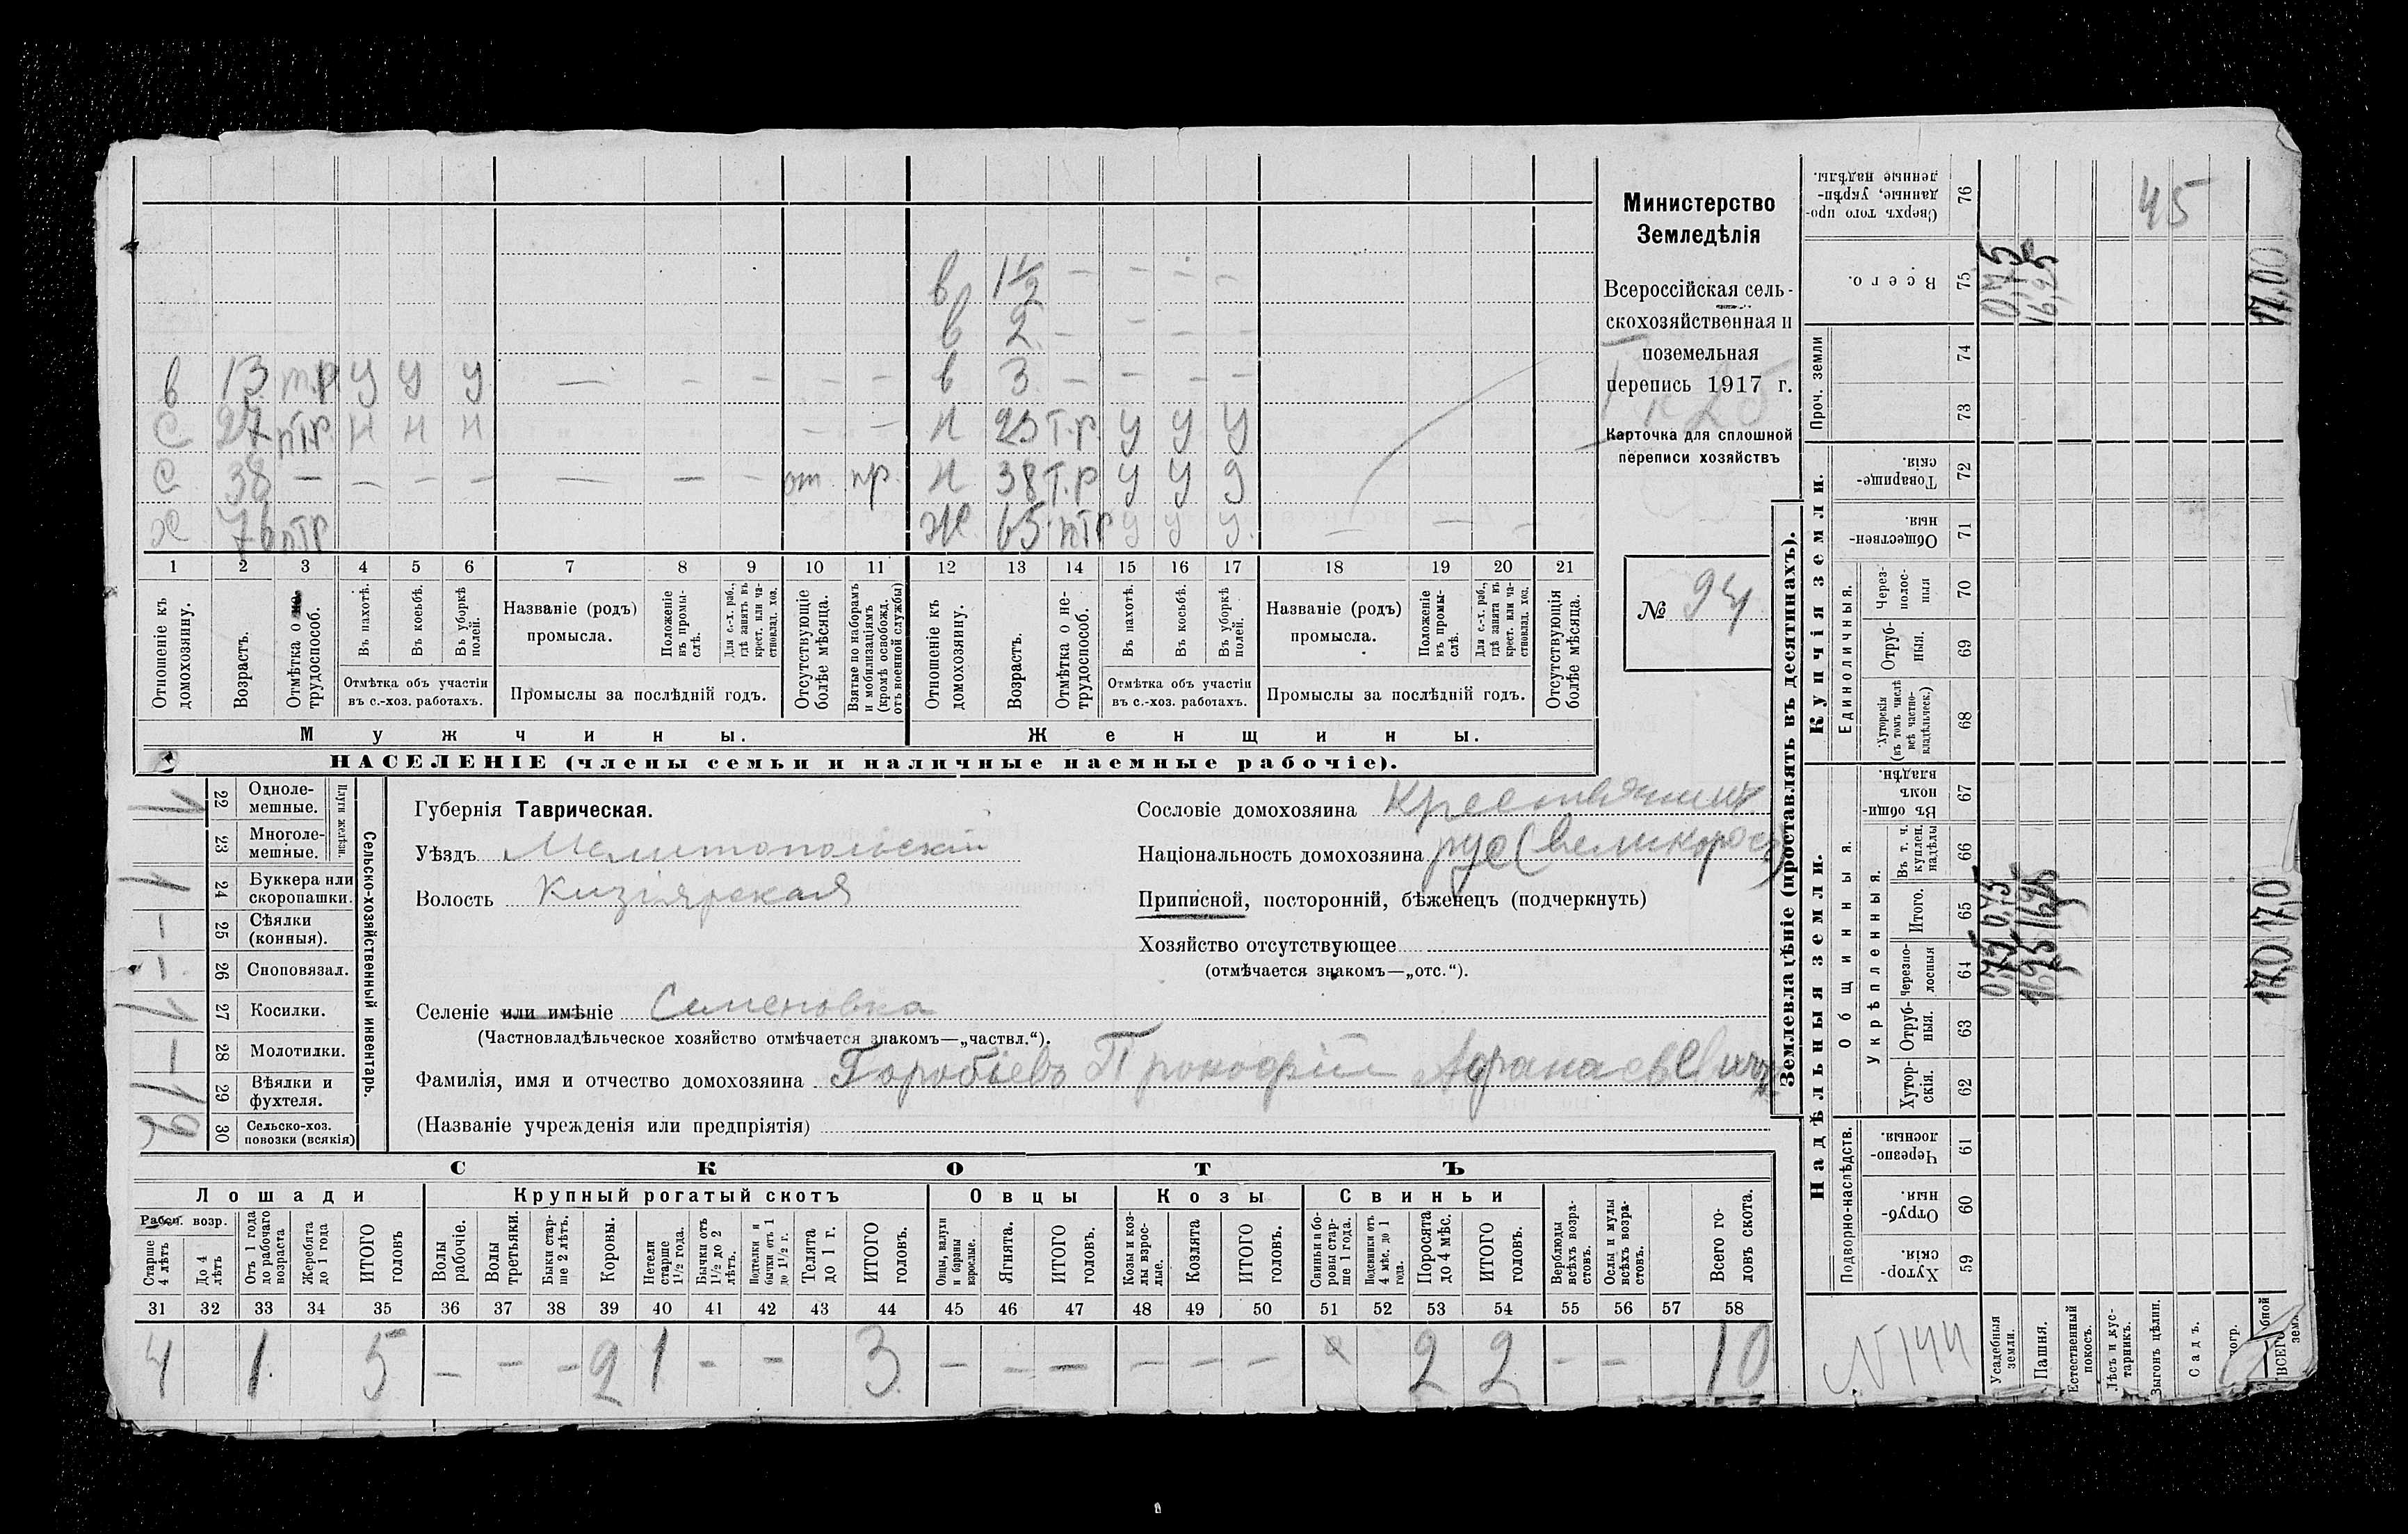 в 1½ — — — —
в 2 — — — —
в 13 т.р у у у — — — — — в 3 — — — — —
С 27 птр н н н — — н 23 т.р у у у
С 38 — — — — — — — от пр. н 38 т.р у у у
х 76 птр ж 65 птр у у у. — — —
1 2 3 4 5 6 7 8 9 10 11 12 13 14 15 16 17 18 19 20 21
Отношеніе къ домохозяину.
Возрастъ.
Отмѣтка о не-трудоспособ.
Въ пахотѣ.
Въ косьбѣ.
Въ уборкѣ полей.
Отмѣтка объ участіи
въ с.-хоз. работахъ.
Названіе (родъ)
промысла.
Положеніе въ промы-слѣ.
Для с.-х. раб., гдѣ занятъ въ крест. или ча-стновлад. хоз.
Промыслы за послѣдній годъ.
Отсутствующіе болѣе мѣсяца.
Взятые по наборамъ и мобилизаціямъ (кромѣ освобожд. отъ военной службы)
Отношеніе къ домохозяину.
Возрастъ.
Отмѣтка о не-трудоспособ.
Въ пахотѣ.
Въ косьбѣ.
Въ уборкѣ полей.
Отмѣтка объ участіи
въ с.-хоз. работахъ.
Названіе (родъ)
промысла.
Положеніе въ промы-слѣ.
Для с.-х. раб., гдѣ занята въ крест. или ча-стновлад. хоз.
Промыслы за послѣдній годъ.
Отсутствующія болѣе мѣсяца.
Мужчины. Женщины.
НАСЕЛЕНІЕ (члены семьи и наличные наемные рабочіе).
Министерство
Земледѣлія
Всероссійская сель-
скохозяйственная и
поземельная
перепись 1917 г.
Карточка для сплошной
переписи хозяйствъ
№ 94
1 22 Одноле-мешные.
23 Многоле-мешные.
Плуги желѣзн.
1 24 Буккера или скоропашки.
1 25 Сѣялки (конныя).
1 26 Сноповязал.
1 27 Косилки.
1 28 Молотилки.
1 29 Вѣялки и фухтеля.
2 30 Сельско-хоз. повозки (всякія)
Сельско-хозяйственный инвентарь.
Губернія Таврическая.
Уѣздъ Мелитопольскій
Волость Кизіярская
Селеніе или имѣніе Семеновка
(Частновладѣльческое хозяйство отмѣчается знакомъ—„частвл.“).
Сословіе домохозяина Крестьянинъ
Національность домохозяина рус (великоросъ)
Приписной, посторонній, бѣженецъ (подчеркнуть)
Хозяйство отсутствующее
(отмѣчается знакомъ—„отс.“).
Фамилія, имя и отчество домохозяина Горобіевъ Прокофій Афранаевевичъ
(Названіе учрежденія или предпріятія)
СКОТЪ
Лошади Крупный рогатый скотъ Овцы Козы Свиньи
Рабоч. возр.
Старше 4 лѣтъ
До 4 лѣтъ
Отъ 1 года до рабочаго возраста
Жеребята до 1 года
ИТОГО головъ
Волы рабочіе.
Волы третьяки.
Быки стар-ше 2 лѣтъ.
Коровы.
Нетели старше 1½ года.
Бычки отъ 1½ до 2 лѣтъ.
Подтелки и бычки отъ 1 до 1½ г.
Телята до 1 г.
ИТОГО головъ.
Овцы, валухи и бараны взрослые.
Ягнята.
ИТОГО головъ.
Козы и коз-лы взрос-лые.
Козлята
ИТОГО головъ.
Свиньи и бо-ровы стар-ше 1 года.
Подсвинки отъ 4 мѣс. до 1 года.
Поросята до 4 мѣс.
ИТОГО головъ.
Верблюды всѣхъ возра-стовъ.
Ослы и мулы всѣхъ возра-стовъ.
Всего го-ловъ скота.
31 32 33 34 35 36 37 38 39 40 41 42 43 44 45 46 47 48 49 50 51 52 53 54 55 56 57 58
4 1 5 — — — 2 1 — — 3 — — — — — — х 2 2 — — 10
Землевладѣніе (проставлять въ десятинахъ).
Надѣльныя земли. Купчія земли.
Подворно-наслѣдств.
Общинныя.
Укрѣпленныя.
Единоличныя.
Проч. земли
59 Хутор-скія.
60 Отруб-ныя.
61 Черезпо-лосныя.
62 Хутор-скія.
63 Отруб-ныя.
64 Черезпо-лосныя
65 Итого.
66 Въ т. ч. куплен. надѣлы
67 Въ общи-номъ владѣн.
68 Хуторскія (въ томъ числѣ всѣ частно-владѣльческ.)
69 Отруб-ныя.
70 Через-полос-ныя
71 Обществен-ныя.
72 Товарище-скія.
73
74
75 Всего.
76 Сверхъ того про-данные, укрѣп-ленные надѣлы.
N 144
Усадебныя земли. 0,75 0,75 0,75
Пашня. 16,25 16,25 16,25
Естественный покосъ.
Лѣсъ и кус-тарникъ.
Выгонъ цѣлин. 45
Садъ.
ВСЕГО 17,0 17,0 17,00